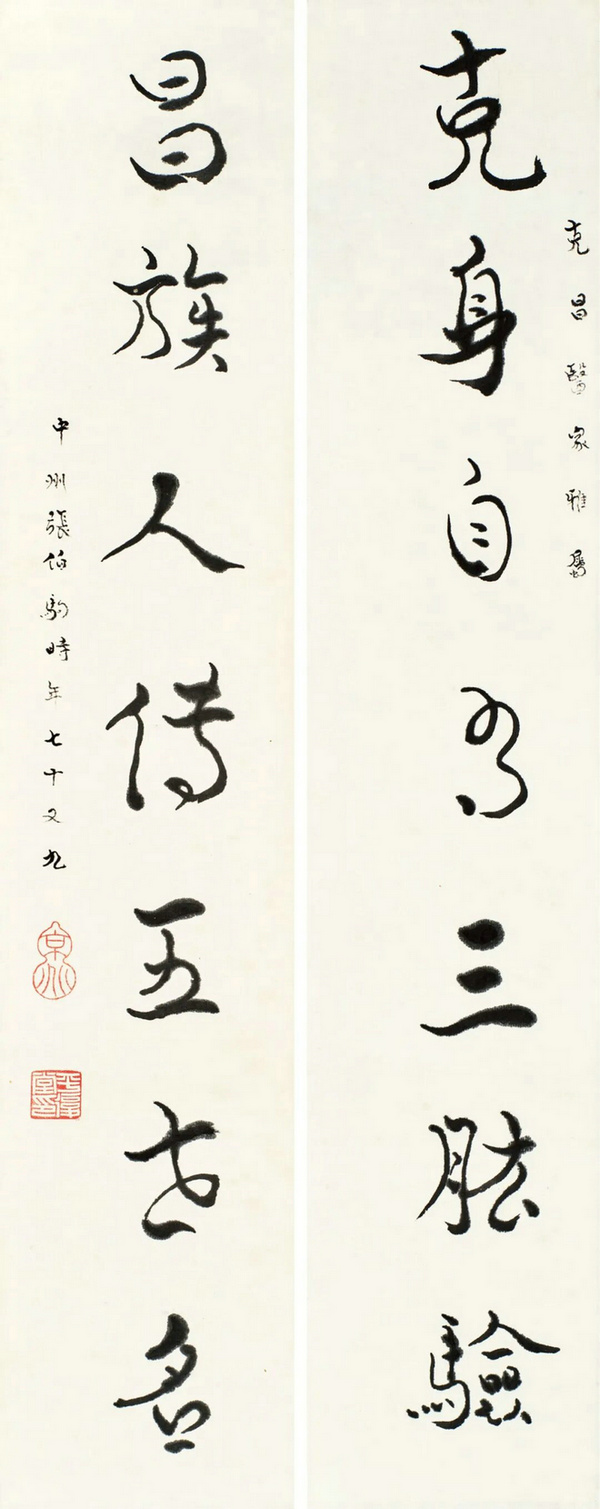 克昌醫家雅屬
克身自有三肱驗
昌族人傳五世名
中州張伯駒時年七十又九
京兆
平復堂印